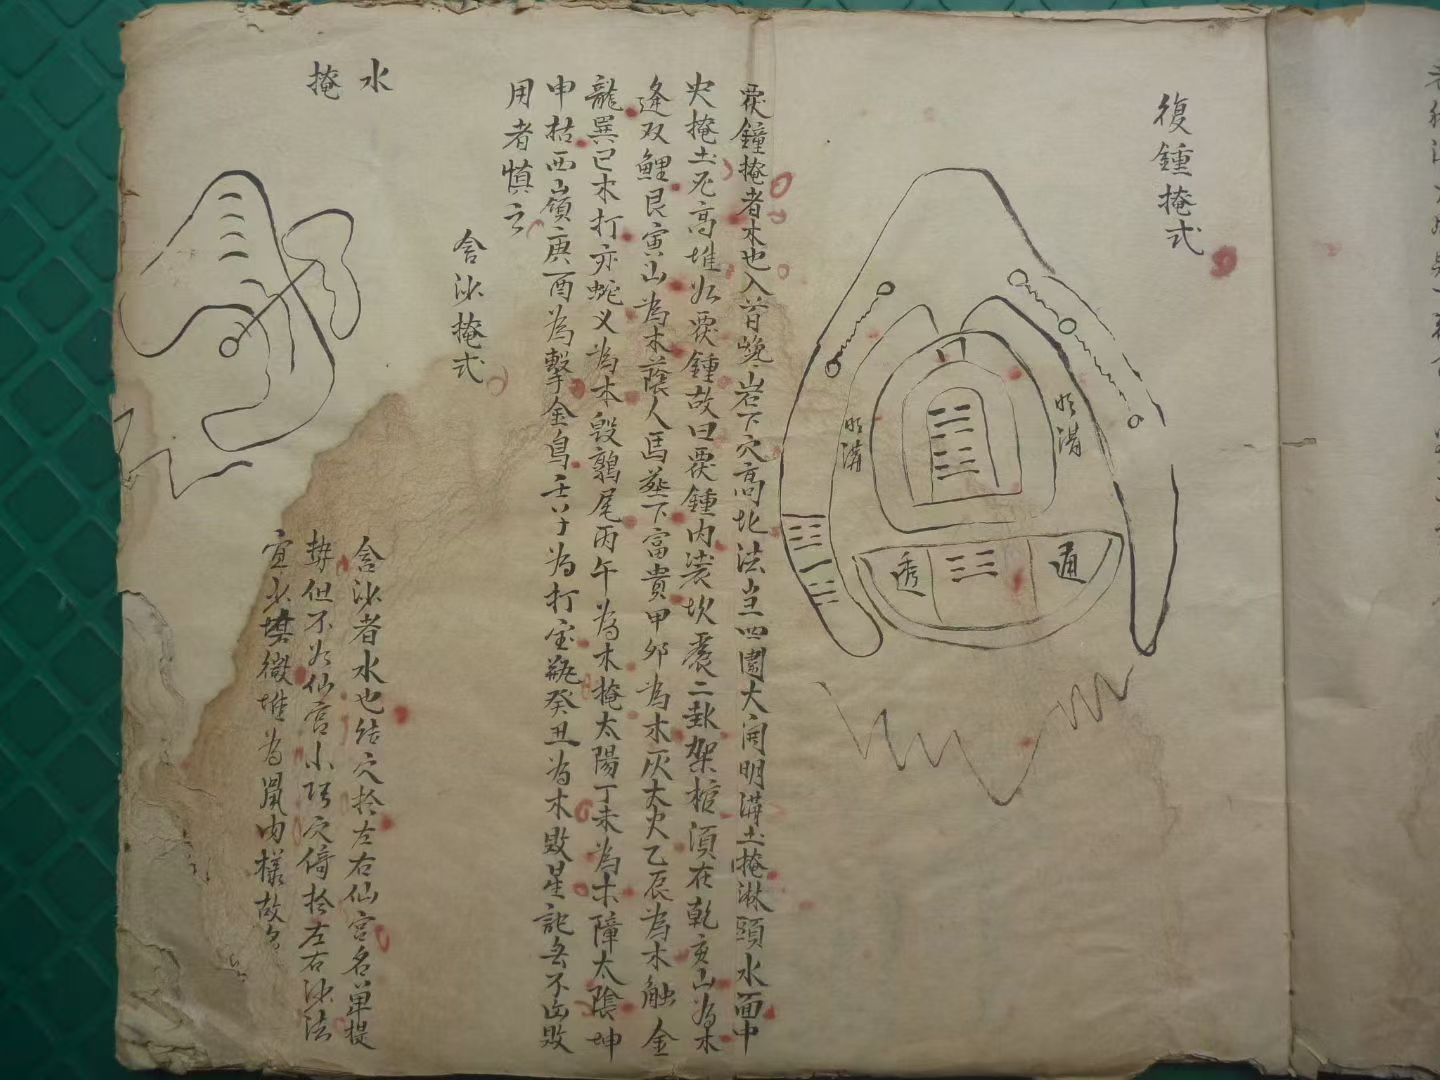 復鍾掩式
明溝
明溝
透
直
覆鐘掩者木也入首巉岩下穴高北法当四圍大開明溝土掩淋頭水面中
火掩土尼高堆如覆鍾故曰覆鍾内裝坎震二卦架棺須在乾亥山為木
逢双鯉艮寅山為木蔭人馬葬下富貴甲卯為木灰太火乙辰為木触金
龍巽已木打赤蛇义為木毀鶉尾丙午為木掩太陽丁未為木障太陰坤
申枯西山嶺庚酉為擊金烏壬子为打宝瓶癸丑為木敗星訛無不凶敗
用者慎之
含沙掩式
水
掩
含沙者水也结穴於左右仙宫名单提
势但不如仙宫小巧穴倚於左右沙法
宜水填微堆為鳳肉樣故名